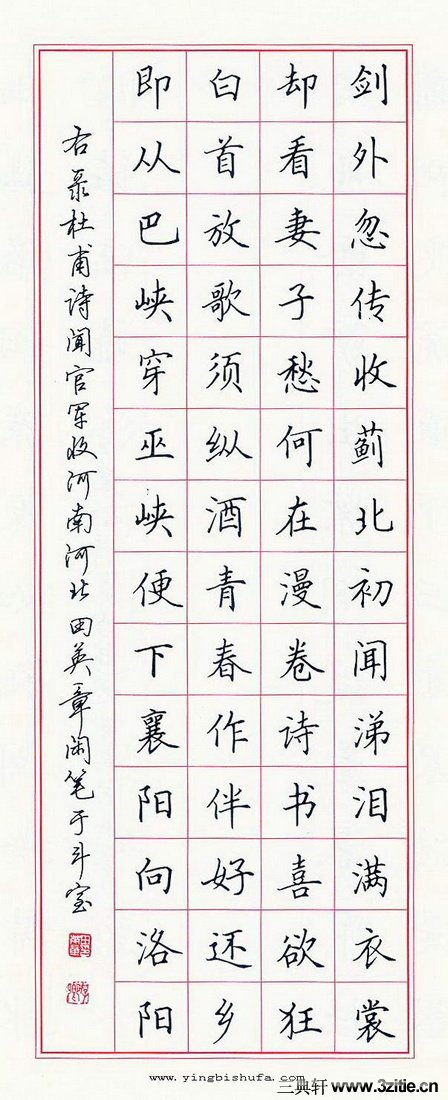 剑外忽传收蓟北初闻涕泪满衣裳
却看妻子愁何在漫卷诗书喜欲狂
白首放歌须纵酒青春作伴好还乡
即从巴峡穿巫峡便下襄阳向洛阳
右录杜甫诗闻官军收河南河北 田英章闲笔于斗室
www.yingbishufa.com
三典轩 www.3ztde.cn